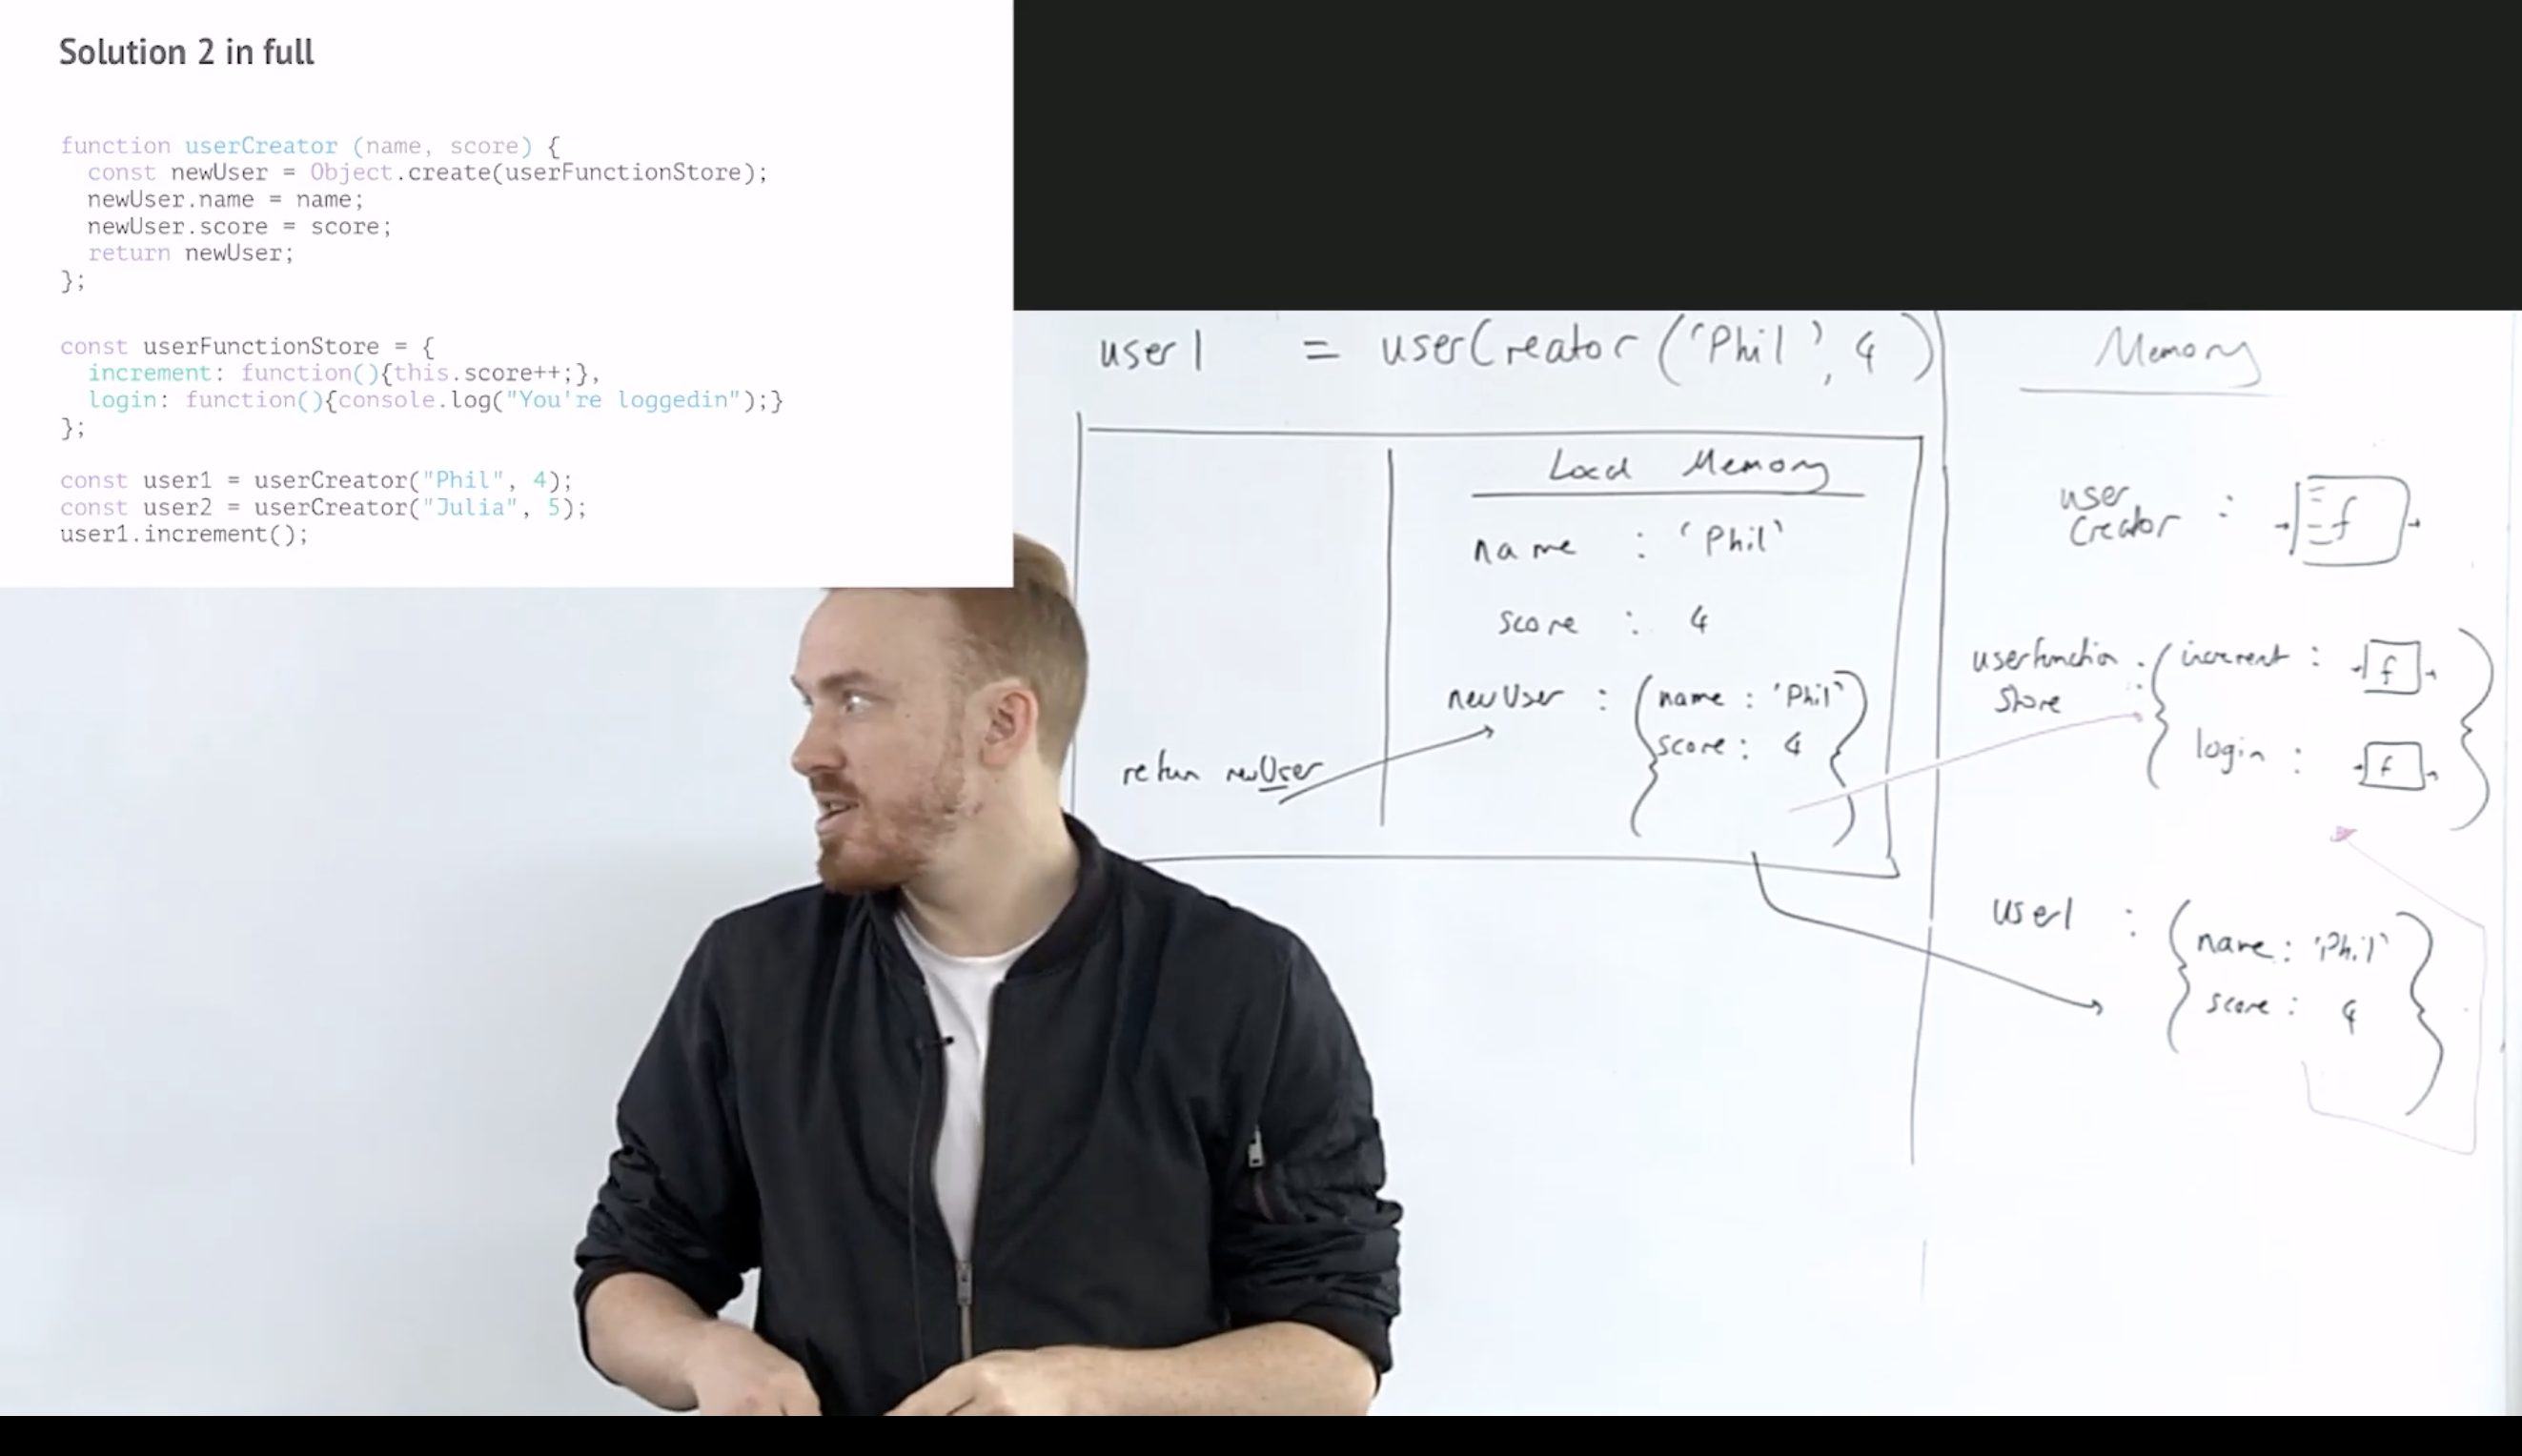 Solution 2 in full
function userCreator (name, score) {
const newUser = Object.create(userFunctionStore);
newUser.name = name;
newUser.score = score;
return newUser;
};
const userFunctionStore = {
increment: function(){this.score++;},
login: function(){console.log("You're loggedin");}
};
const user1 = userCreator("Phil", 4);
const user2 = userCreator("Julia", 5);
user1.increment();
user1 = userCreator('Phil', 4)
Local Memory
name : 'Phil'
score : 4
newUser : { name : 'Phil'
score : 4 }
return newUser
Memory
user
Creator : f
userfunction : { increment : f
store
login : f }
user1 : { name : 'Phil'
score : 4 }